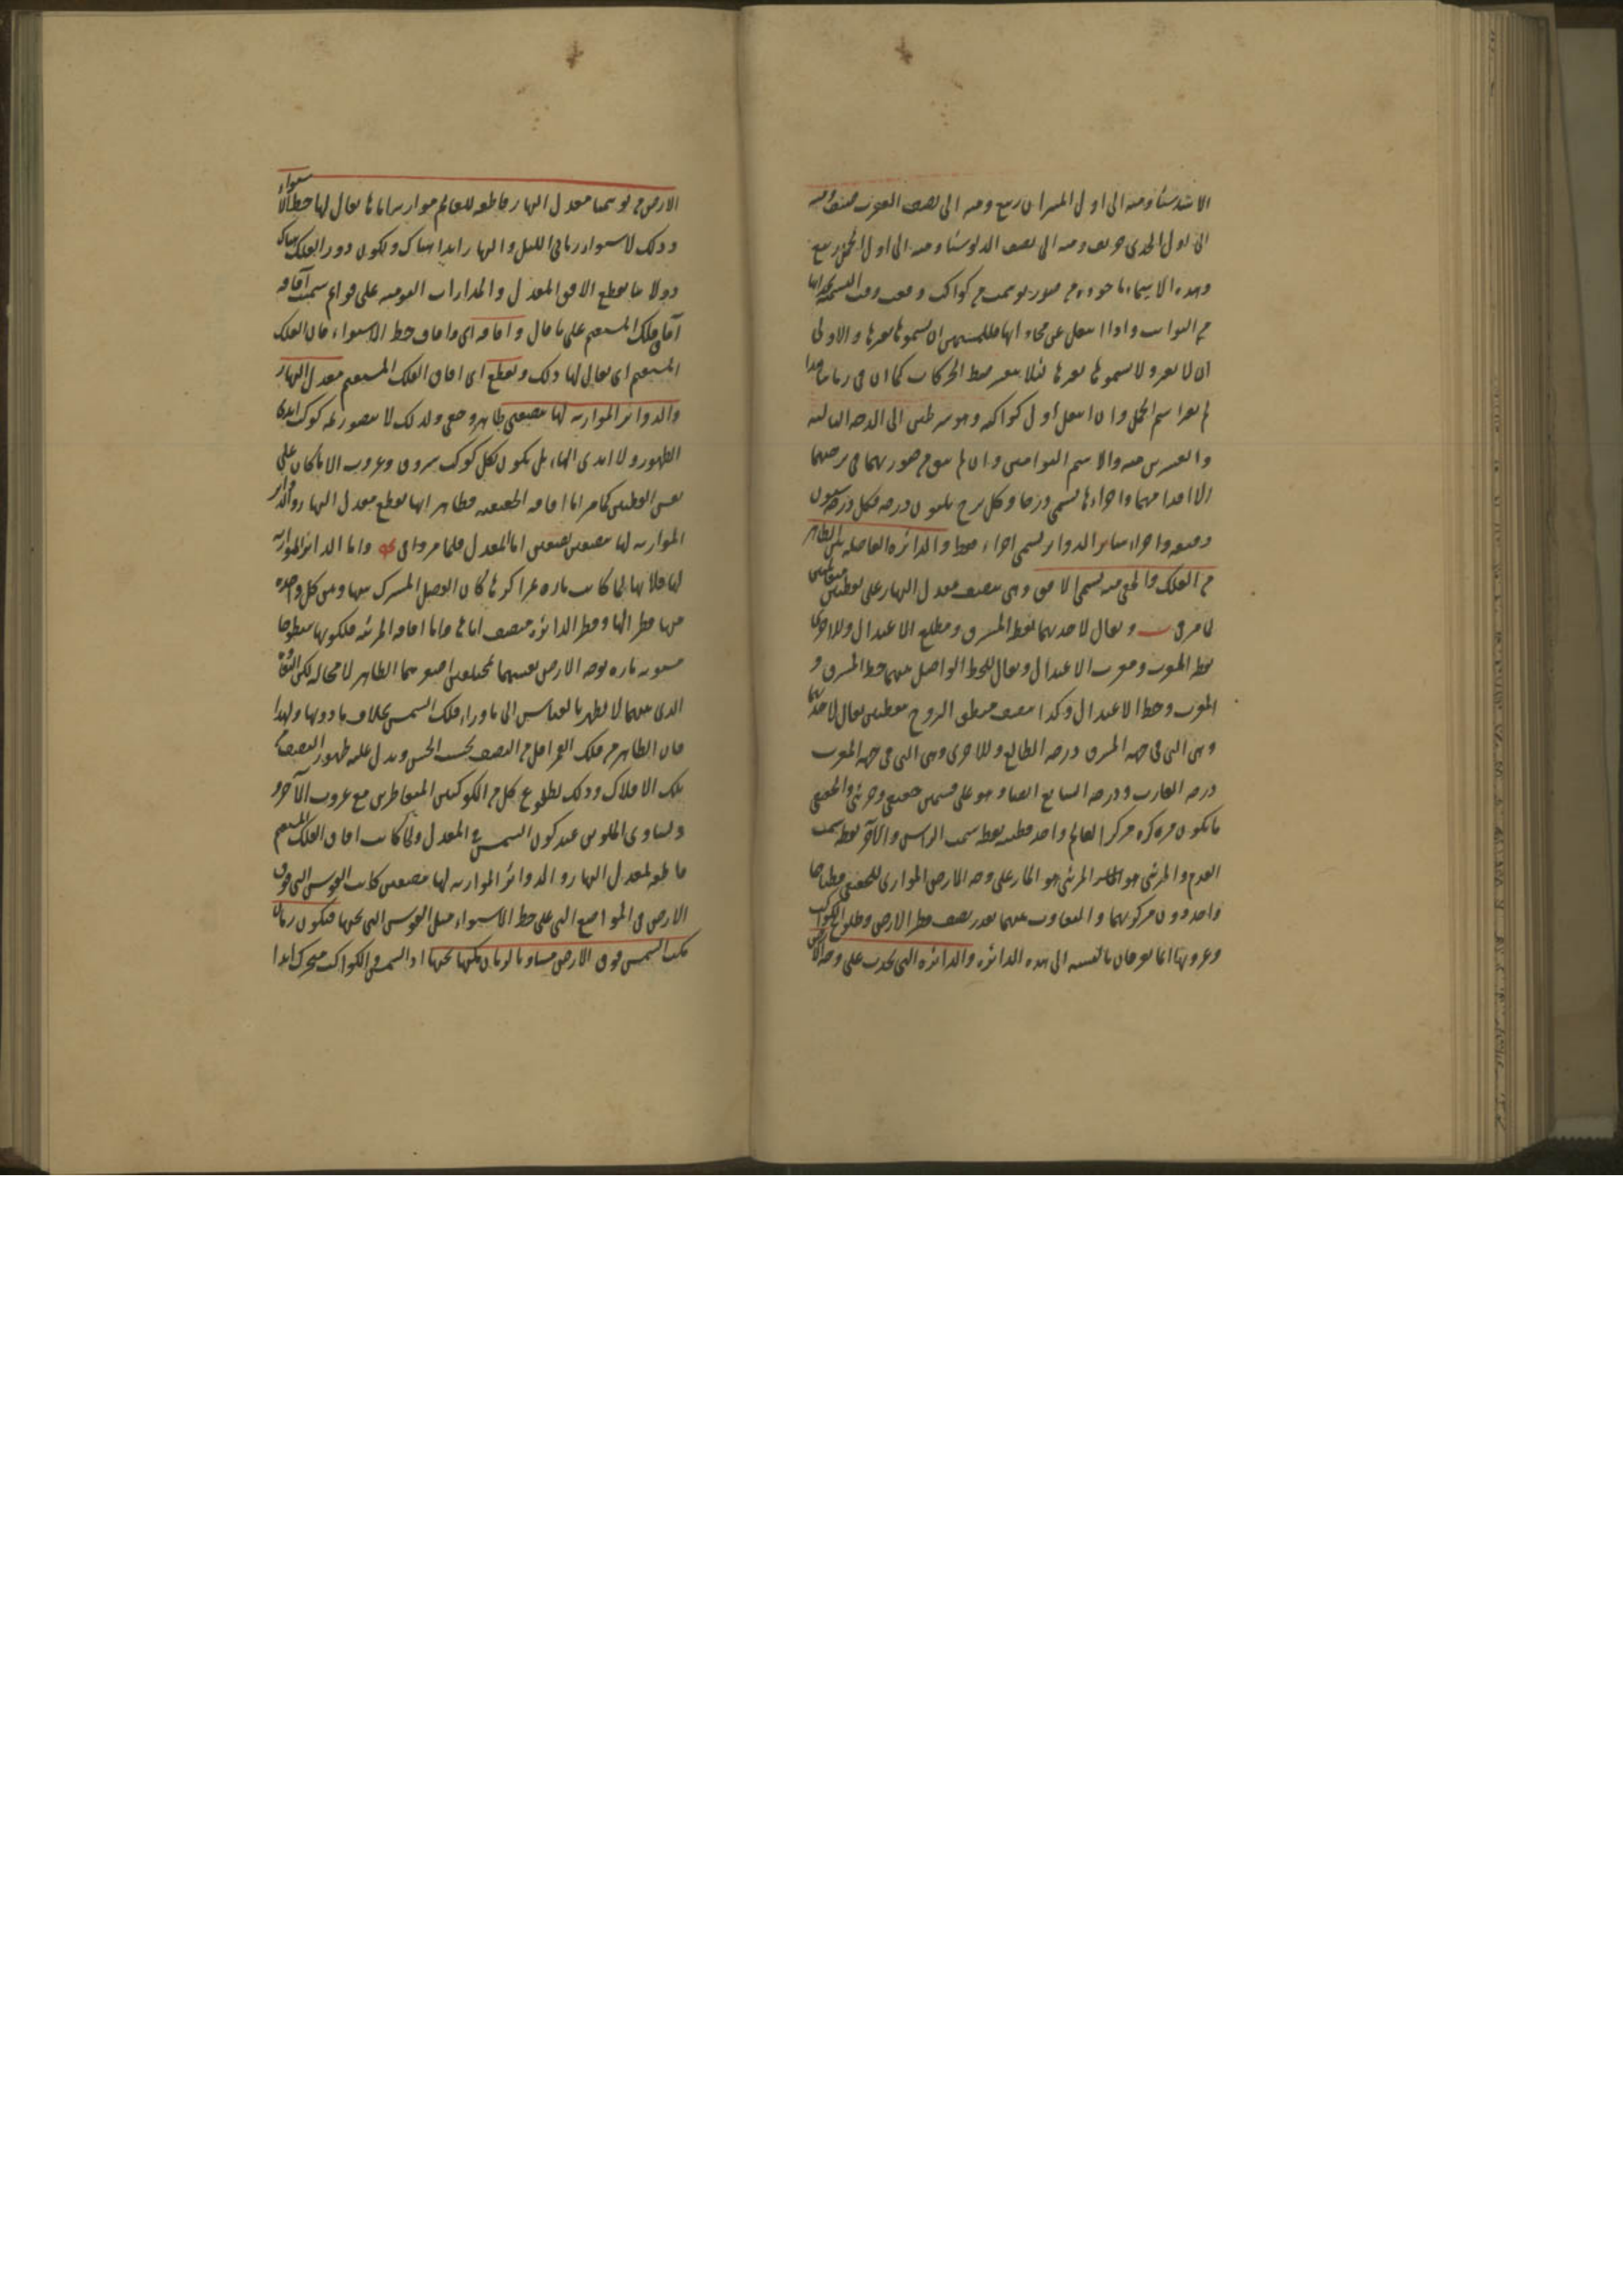 ومنه الى اول الميزان ربيع ومنه الى نصف العقرب
الى اول الجدى خريف ومنه الى نصف الدلو شتا ومنه الى اول الحمل ربيع
وهذه الاسماء ماخوذة من صور توهمت من كواكب وقعت وقت التسمية
من الثوابت واذا انتقل عن محاذاتها فللمنجمين ان يسموها بغيرها والاولى
ان لا يغير ولا يسموها بغيرها لئلا يتغير ضبط الحركات كما ان فى زماننا هذا
لم يغير اسم الحمل وان انتقل اول كواكبه وهو شرطين الى الدرجه الثالثه
والعشرين منه والاسم التوامين وان لم يبق من صورتهما فى برجهما
واجزاءها يسمى درجا وكل برج ثلثون درجه فكل درجه ستون
دقيقه واجزاء سائر الدوائر يسمى اجزاء فقط والدائره الفاصله بين الظاهر
من الفلك والخفى منه يسمى الافق وهى ينصف معدل النهار على نقطتين
لما مر فى ويقال لاحديهما نقطه المشرق ومطلع الاعتدال وللاخرى
نقطه المغرب ومغرب الاعتدال ويقال للخط الواصل بينهما خط المشرق و
المغرب وخط الاعتدال وكذا ينصف منطقه البروج بنقطتين يقال لاحديهما
وهى التى فى جهه المشرق درجه الطالع وللاخرى وهى التى فى جهه المغرب
درجه الغارب ودرجه السابع ايضا وهو على قسمين حقيقى ومرئى والحقيقى
ما يكون مركزه مركز العالم واحد قطبيه نقطه سمت الراس والآخر نقطه سمت
القدم والمرئى هو المار على وجه الارض الموازى للحقيقى قطباهما
واحد دون مركزيهما والتفاوت بينهما بقدر نصف قطر الارض وطلوع الكواكب
وغروبها انما يعرفان بالنسبه الى هذه الدائره والدائره التى تحدث على وجه الارض
الارض من توهمنا معدل النهار قاطعه للعالم يقال لها خط الاستواء
وذلك لاستواء زمانى الليل والنهار ابدا هناك ويكون دور الفلك هناك
دولابيا يقطع الافق المعدل والمدارات اليوميه على قوائم سميت آفاقه
آفاق الفلك المستقيم على ما قال وآفاقه اى وآفاق خط الاستواء فان الفلك
المستقيم اى يقال لها ذلك ويقطع اى آفاق الفلك المستقيم معدل النهار
والدوائر الموازيه لها بنصفين ظاهر وخفى ولذلك لا يتصور ثمه كوكب ابدى
الظهور ولا ابدى الخفاء بل يكون لكل كوكب شروق وغروب الا ما كان على
نفس القطبين كما مر اما آفاقه الحقيقيه فظاهر انها يقطع معدل النهار والدوائر
الموازيه لها بنصفين نصفين اما المعدل فلما مر واما الدوائر الموازيه
لها فلانها لما كانت ماره بمراكزها كان الفصل المشترك بينها وبين كل واحده
منها قطر الها وقطر الدائره ينصف اياها واما آفاقه المرئيه فلكونها سطوحا
مستويه ماره بوجه الارض يقسمها بمختلفين اصغرهما الظاهر لا محاله لكن التفاوت
الذى بينهما لا يظهر بالقياس الى ما وراء فلك الشمس بخلاف ما دونها ولهذا
فان الظاهر من فلك القمر اقل من النصف بحسب الحس ويدل عليه ظهور النصف من
تلك الافلاك وذلك بطلوع كل من الكوكبين المتقاطرين مع غروب الآخر و
وتساوى الملوين عند كون الشمس فى المعدل ولما كانت آفاق الفلك المستقيم
قاطعه لمعدل النهار والدوائر الموازيه لها بنصفين كانت القوس التى فوق
الارض فى المواضع التى على خط الاستواء مثل القوس التى تحتها فيكون زمان
مكث الشمس فوق الارض مساويا لزمان مكثها تحتها اذ الشمس والكواكب متحرك ابدا